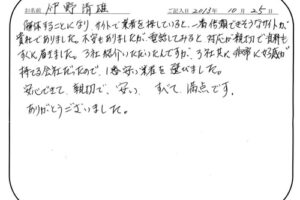 お名前 片野清雄 ご記入日 2013年 10月 25日
解体することになり サイトで業者を探していると、一番信頼できそうなサイトが
貴社でありました。不安もありましたが、電話してみると 対応が親切で資料も
すぐに届きました。3社紹介いただいたんですが、3社共に非常に好感が
持てる会社だったので、1番安い業者を選びました。
安心できて、親切で、安い、すべて満点です。
ありがとうございました。